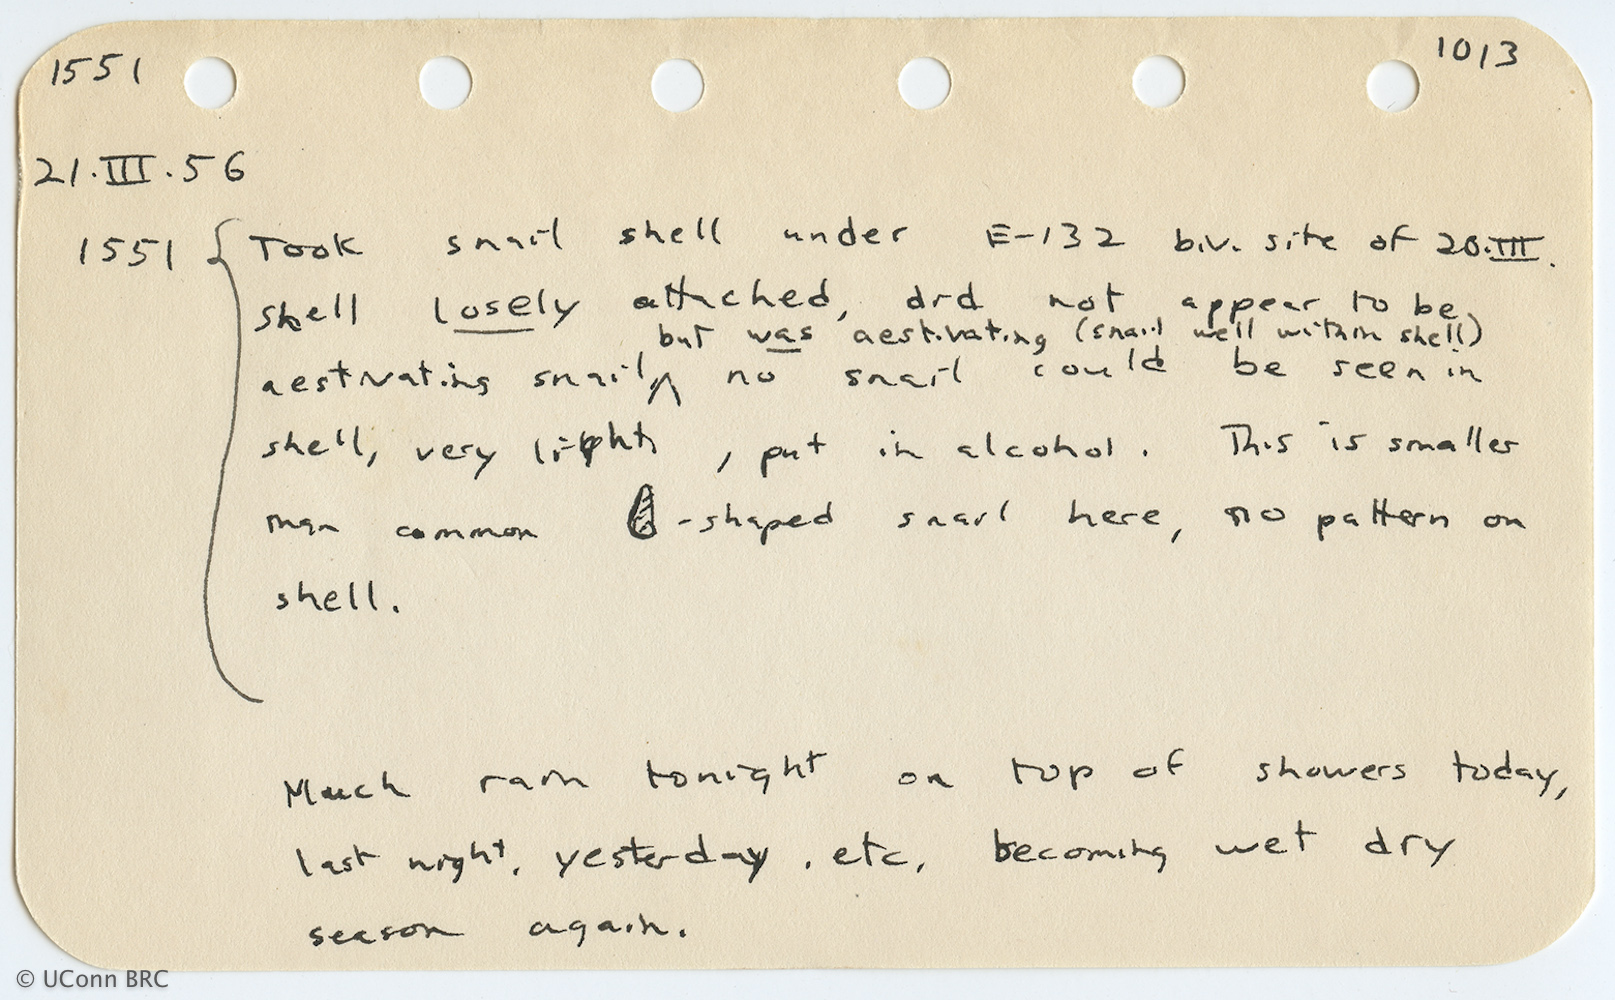 1551 1013
21.III.56
1551 { Took snail shell under E-132 biv. site of 20.III.
shell losely attached, did not appear to be
but was aestivating (snail well within shell)
aestivating snail ^ no snail could be seen in
shell, very light, put in alcohol. This is smaller
than common -shaped snail here, no pattern on
shell.
Much rain tonight on top of showers today,
last night, yesterday, etc, becoming wet dry
season again.
© UConn BRC